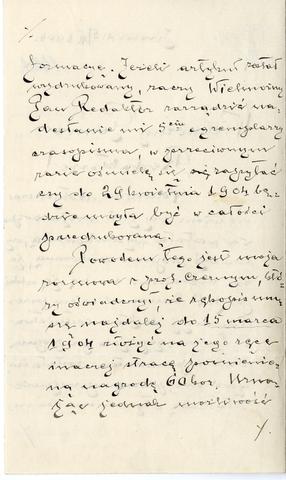 ./.
formacyę. Jeżeli artykuł został
wydrukowany, raczy Wielmożny
Pan Redaktor zarządzić na-
desłanie mi 5ciu egzemplarzy
czasopisma, w przeciwnym
razie ośmielę się się zapytać
czy do 29 kwietnia 1904 bę-
dzie mogła być w całości
przedrukowaną.
Powodem tego jest moja
rozmowa z prof. Czernym, któ-
ry oświadczył, że rękopis mu-
szę najdalej do 15 marca
1904 złożyć na jego ręce
inaczej stracę pomienio-
ną nagrodę 60 kor.
jednak możliwość
./.